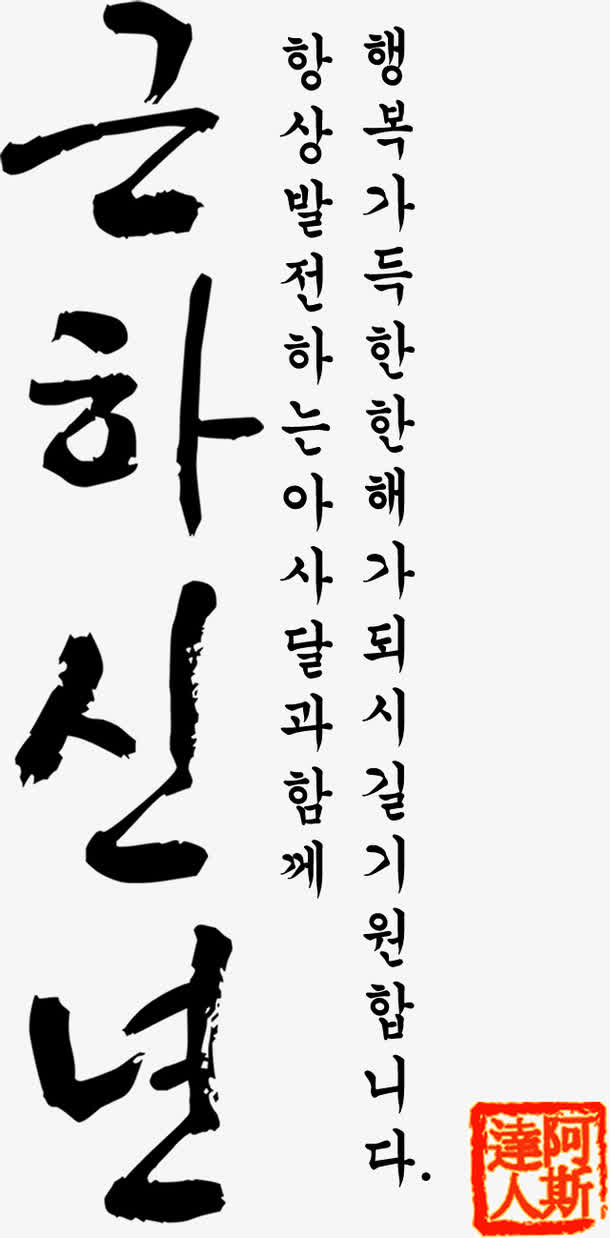 근하신년
항상발전하는아사달과함께
행복가득한한해가되시길기원합니다.
阿斯
達人